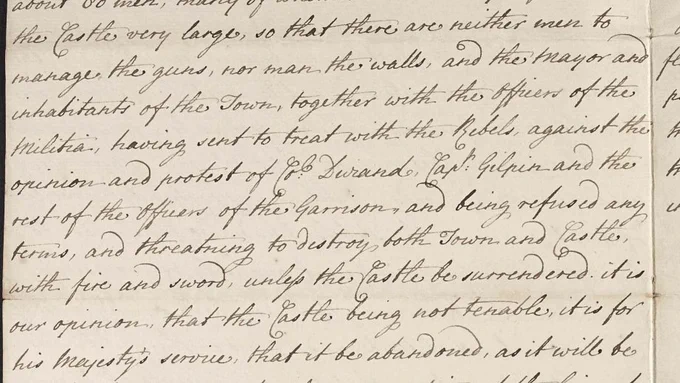 about 80 men, many of
the Castle very large, so that there are neither men to
manage, the guns, nor man the walls, and the Mayor and
inhabitants of the Town, together with the Officers of the
Militia, having sent to treat with the Rebels, against the
opinion and protest of Col. Durand, Capt. Gilpin and the
rest of the Officers of the Garrison, and being refused any
terms, and threatning to destroy both Town and Castle,
with fire and sword, unless the Castle be surrendered. it is
our opinion, that the Castle being not tenable, it is for
his Majesty's service, that it be abandoned, as it will be